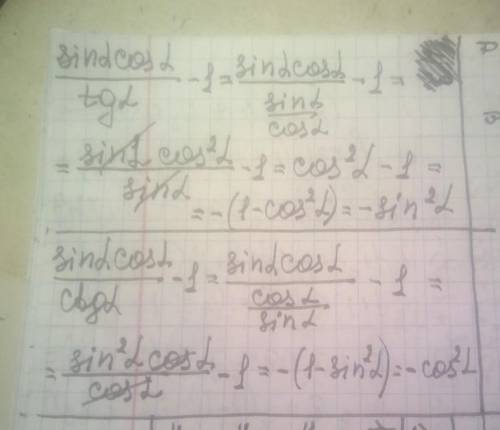 sinα cosα / tgα - 1 = sinα cosα / (sinα / cosα) - 1 =
= sinα cos²α / sinα - 1 = cos²α - 1 =
= -(1 - cos²α) = -sin²α
sinα cosα / ctgα - 1 = sinα cosα / (cosα / sinα) - 1 =
= sin²α cosα / cosα - 1 = -(1 - sin²α) = -cos²α